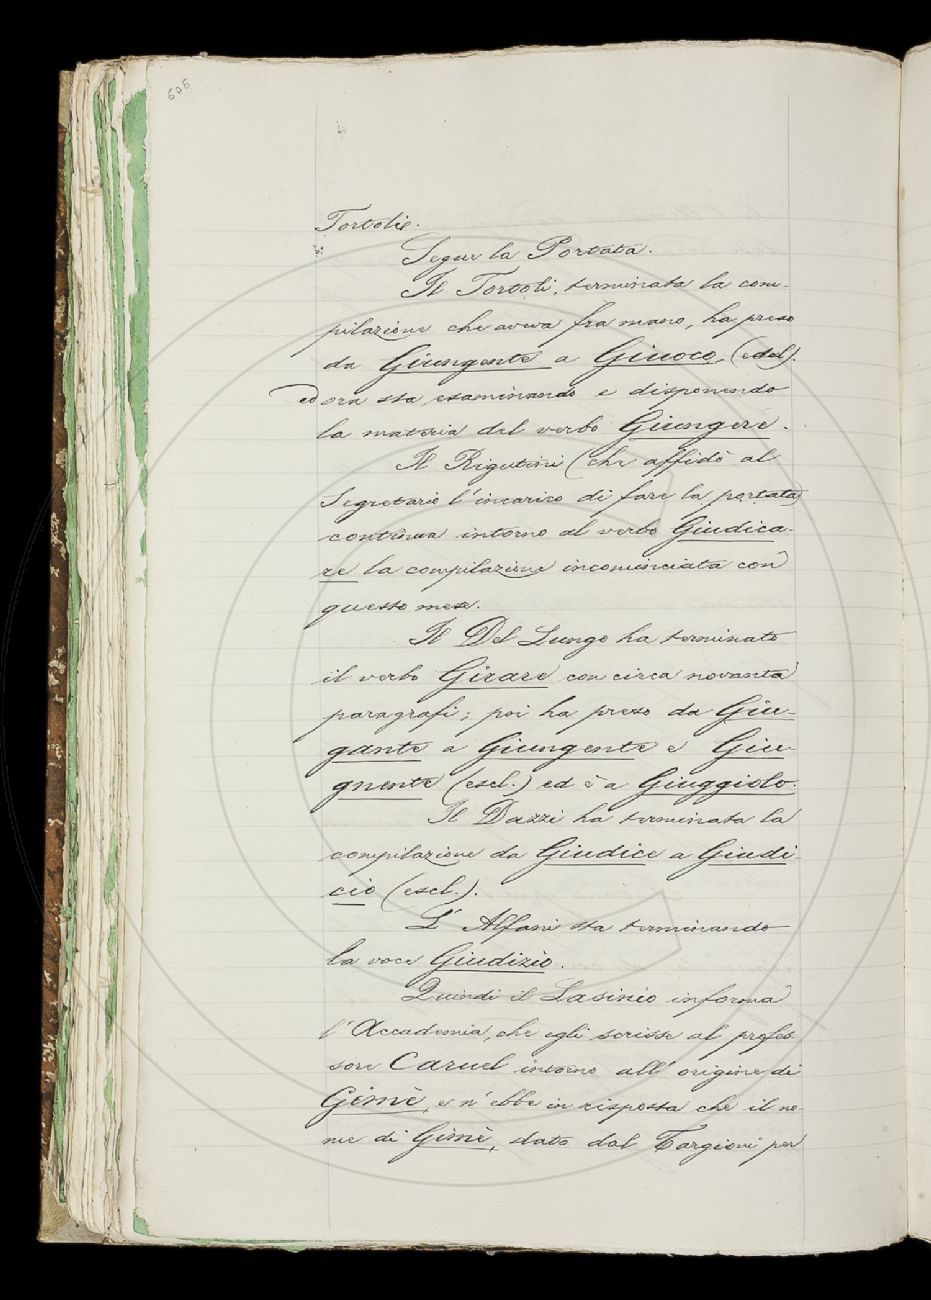 606
Tortoli.
Segue la Portata.
Il Tortoli, terminata la com-
pilazione che aveva fra mano, ha preso
da Giungente a Giuoco, (escl).
ed ora sta esaminando e disponendo
la materia del verbo Giungere.
Il Rigutini (che affidò al
Segretario l'incarico di fare la portata)
continua intorno al verbo Giudica-
re la compilazione incominciata con
questo mese.
Il Del Lungo ha terminato
il verbo Girare con circa novanta
paragrafi; poi ha preso da Giu-
gante a Giungente e Giu-
gnente (escl.) ed è a Giuggiolo.
Il Dazzi ha terminata la
compilazione da Giudice a Giudi-
cio (escl.).
L' Alfani sta terminando
la voce Giudizio.
Quindi il Lasinio informa
l'Accademia, che egli scrisse al profes-
sore Caruel intorno all' origine di
Gimè, e n' ebbe in risposta che il no-
me di Gimè, dato dal Targioni per